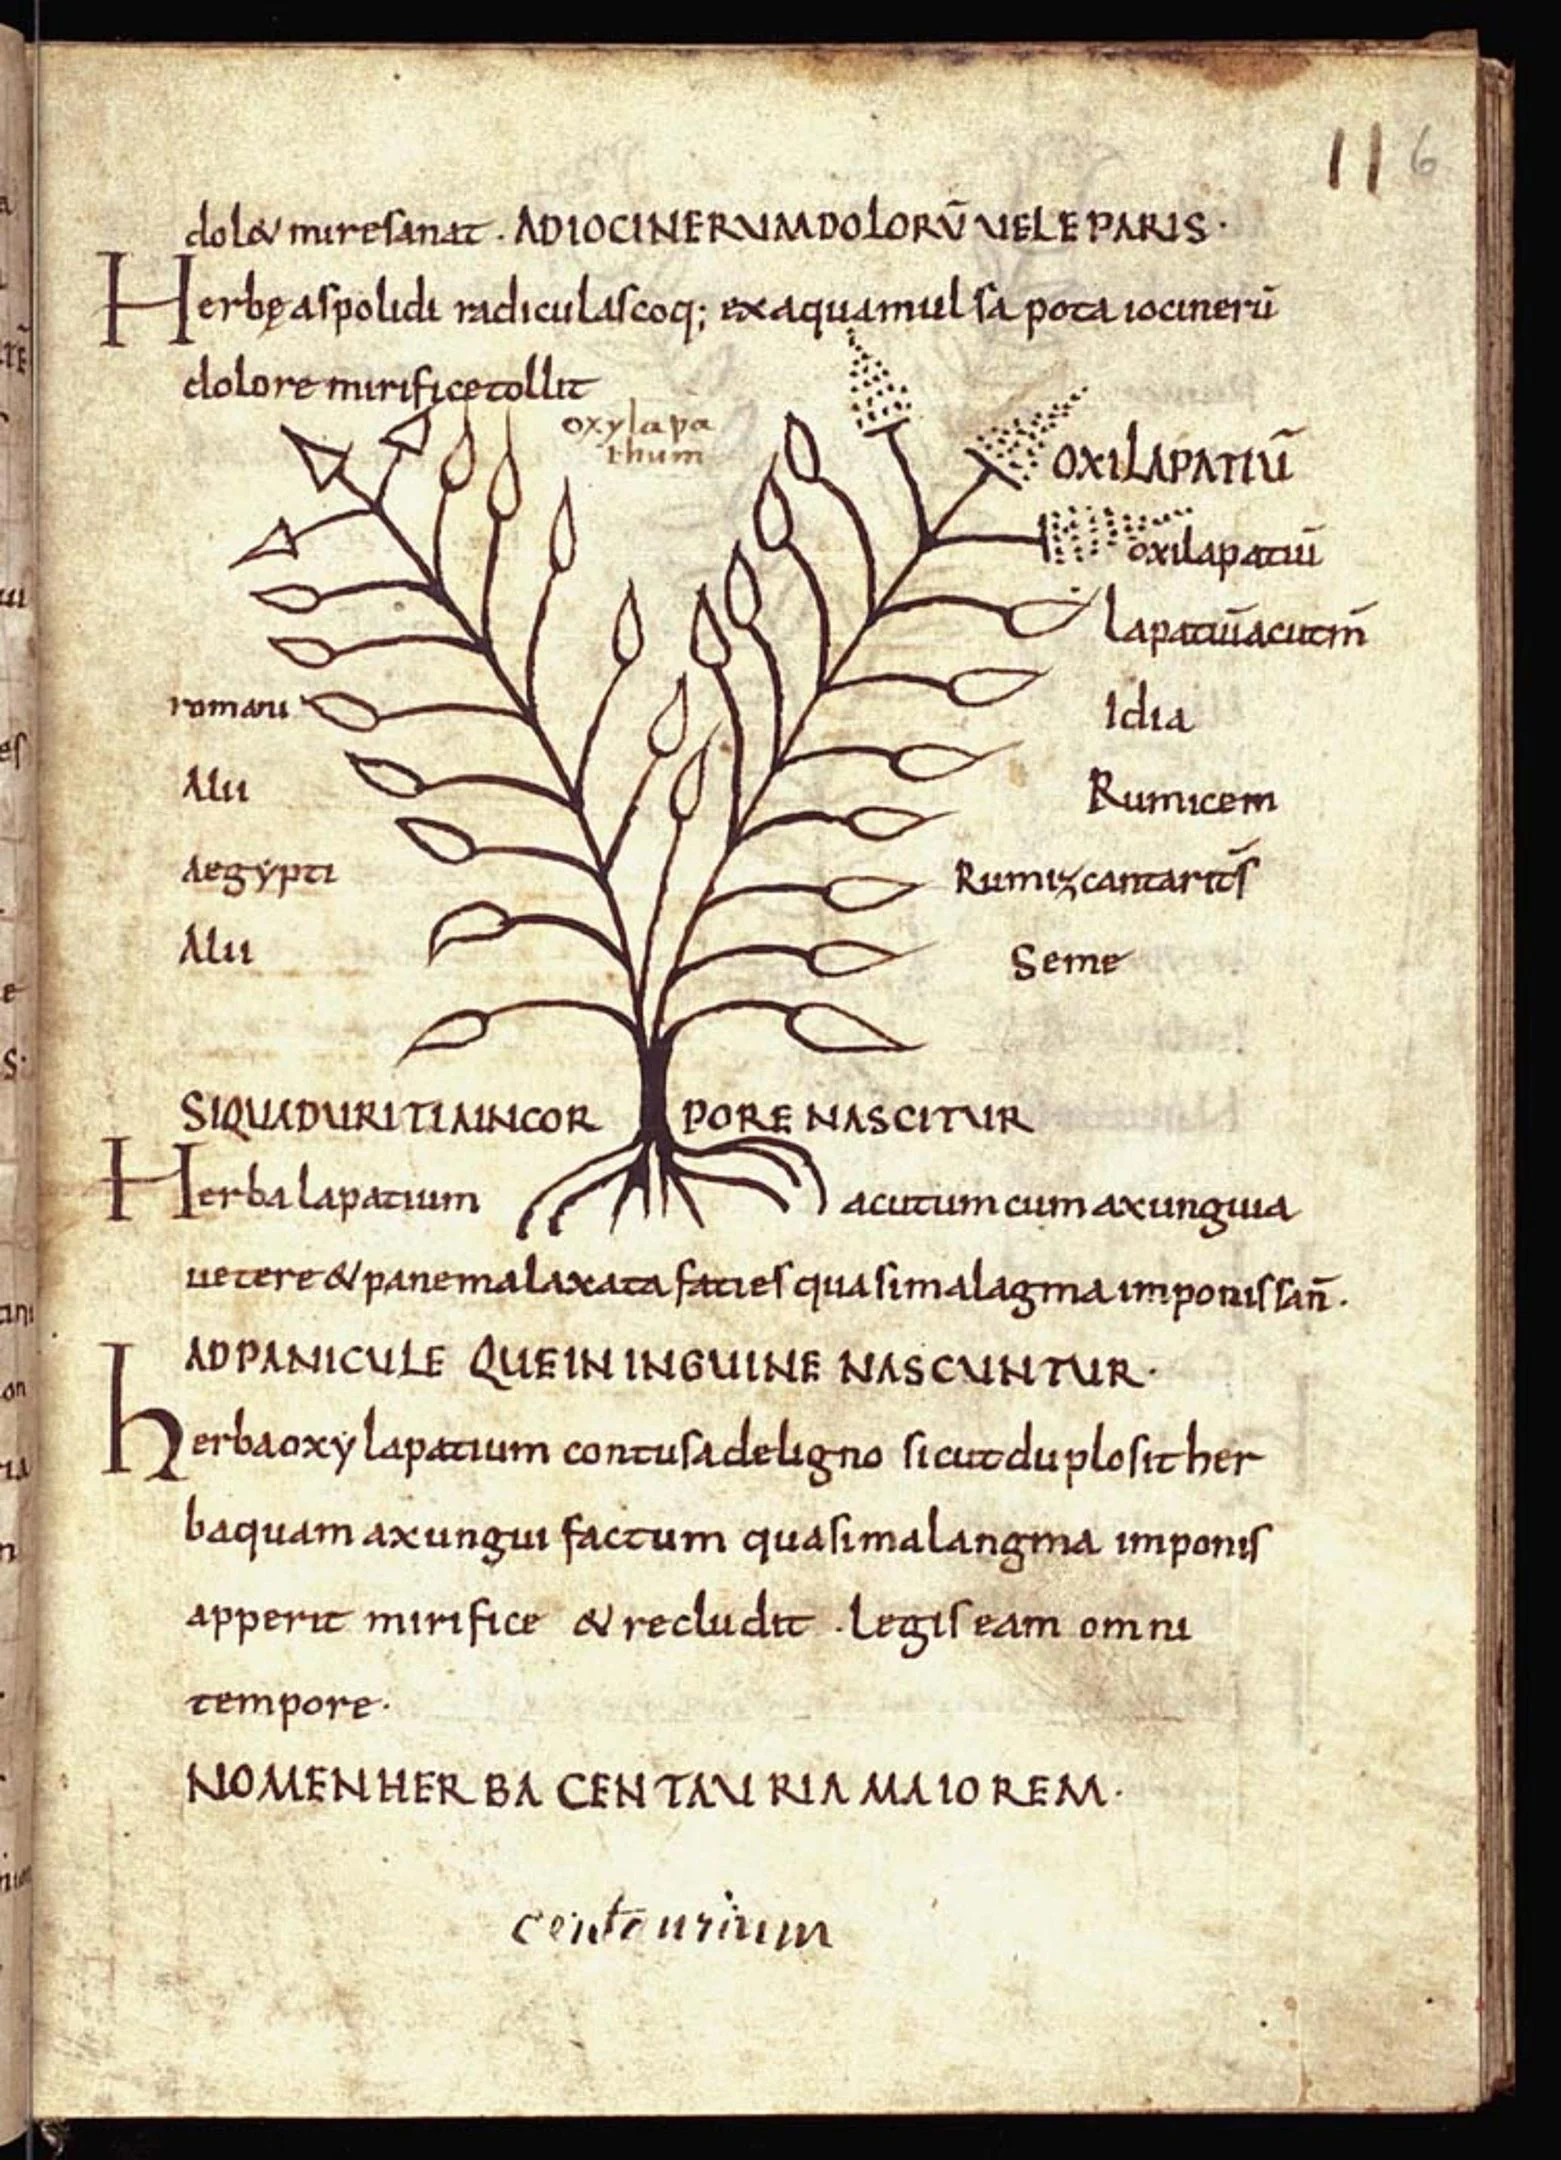 116
dol& mire sanat. AD IOCINERUM DOLORŪ UEL EPARIS.
Herbę aspolidi radiculas coq; ex aqua mulsa pota iocinerū
dolore mirifice tollit
oxylapa
thum
OXILAPATIŪ
oxilapatiū
Lapatiū acutm̄
romani
Idia
Alii
Rumicem
aegypti
Rumix cantarits̄
Alii
Seme
SI QUA DURITIA IN COR PORE NASCITUR
Herba lapatium acutum cum axunguia
uetere & pane malaxata faties quasi malagma imponis san̄.
AD PANICULE QUE IN INGUINE NASCUNTUR.
herba oxẏlapatium contusa de ligno sicut duplo sit her
ba quam axungui factum quasi malangma imponis
apperit mirifice & recludit. Legis eam omni
tempore.
NOMEN HERBA CENTAURIA MAIOREM.
centaurium